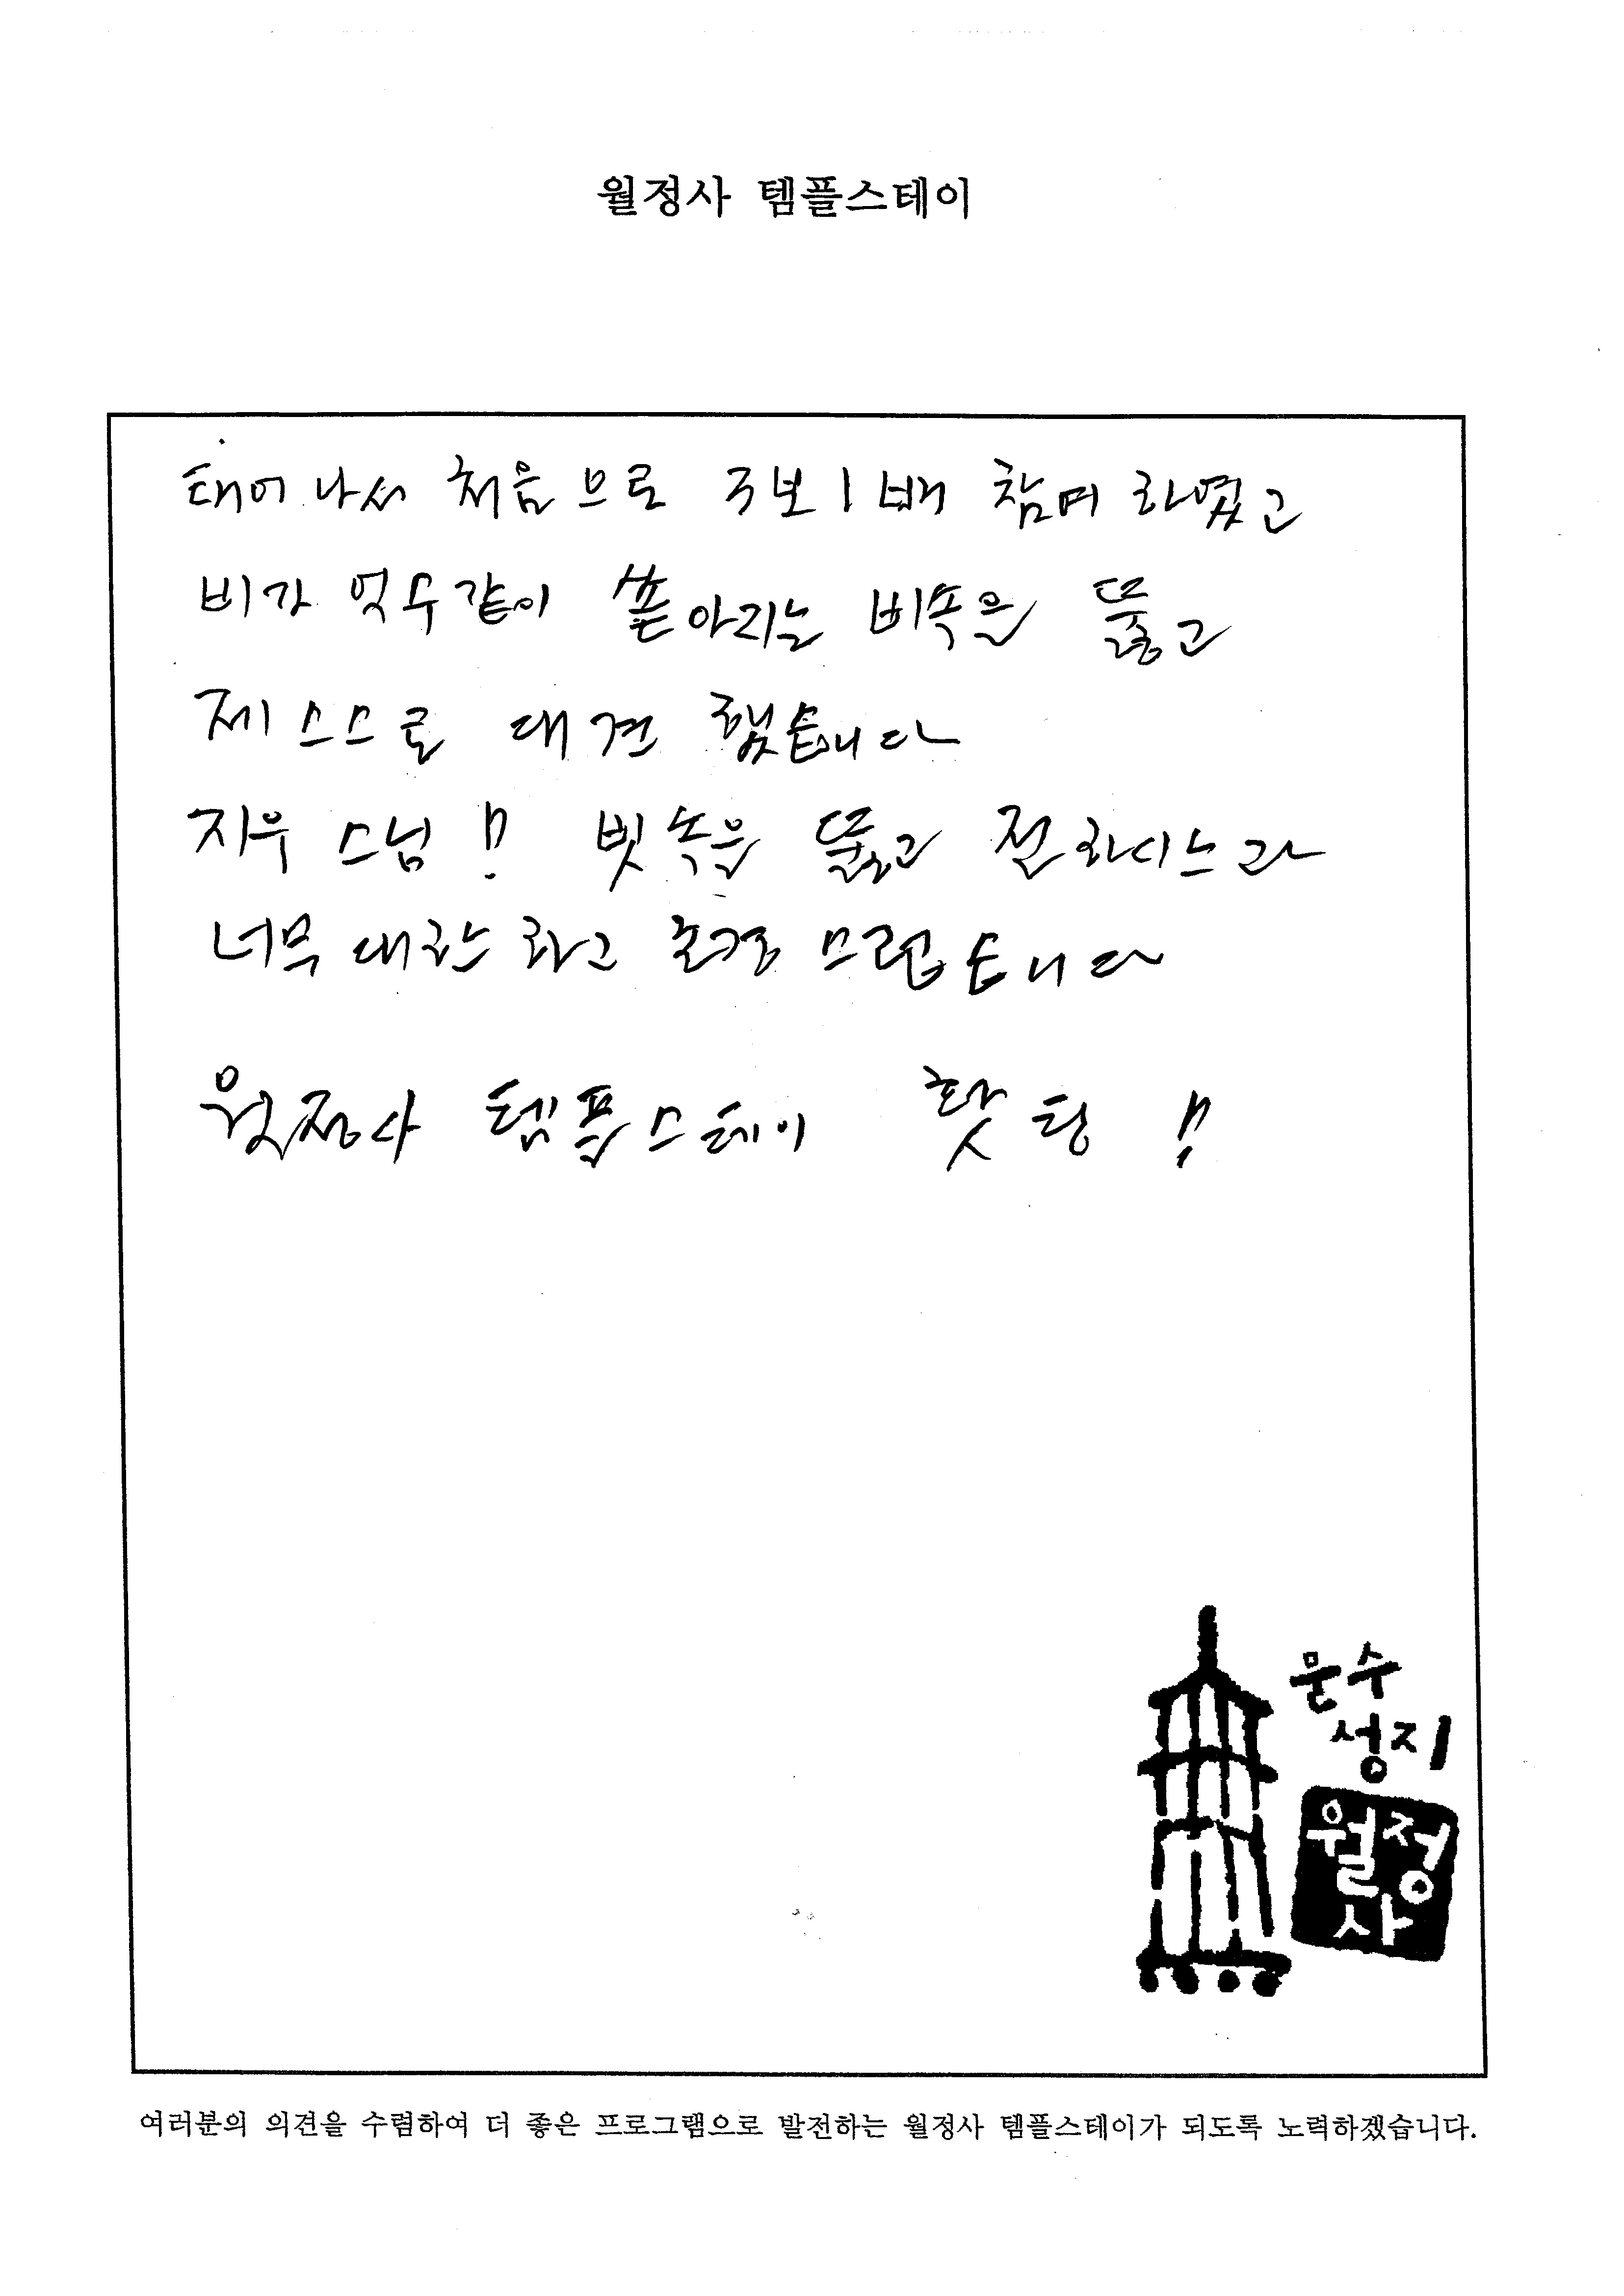 월정사 템플스테이
태어나서 처음으로 3보1배 참여 하였고
비가 억수같이 쏟아지는 비속을 뚫고
제 스스로 대견 했습니다
지우 스님!! 빗속을 뚫고 절하시느라
너무 대단하고 존경 스럽습니다
월정사 템플스테이 핫팅!!
문수
성지
월정
사
여러분의 의견을 수렴하여 더 좋은 프로그램으로 발전하는 월정사 템플스테이가 되도록 노력하겠습니다.